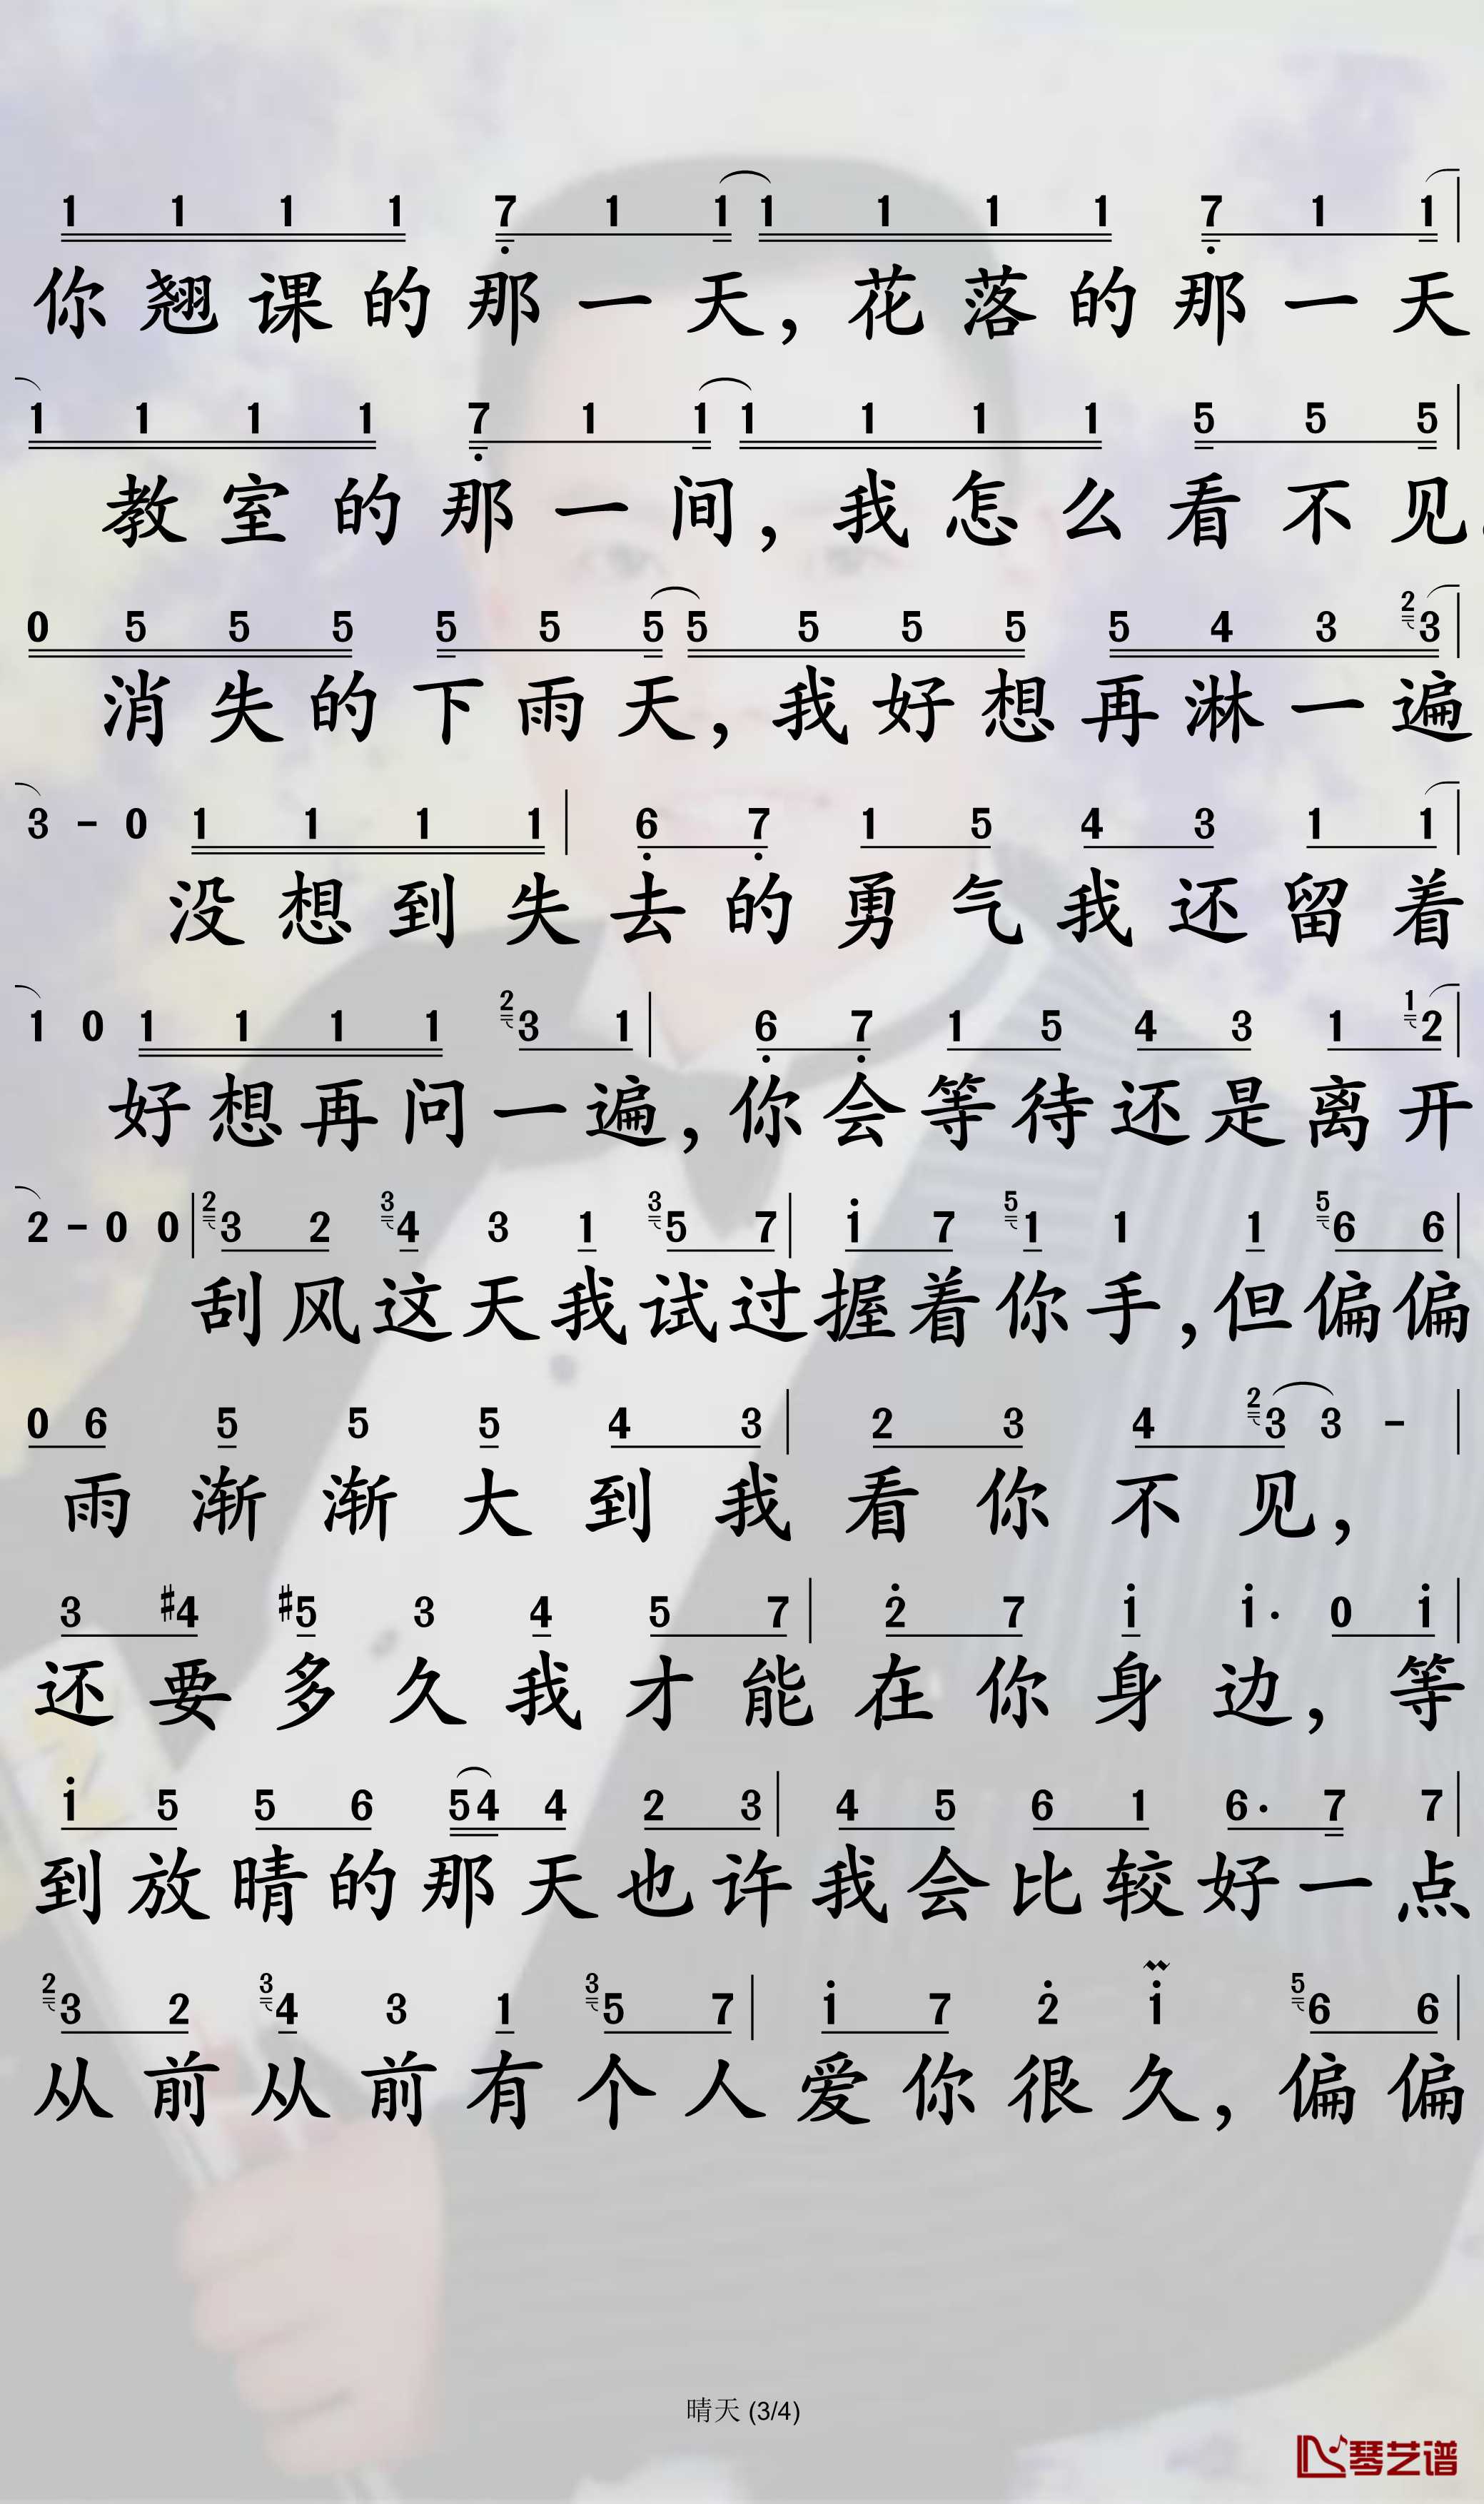 1 1 1 1 7 1 1 1 1 1 1 7 1 1
你翘课的那一天，花落的那一天
1 1 1 1 7 1 1 1 1 1 1 5 5 5
教室的那一间，我怎么看不见
0 5 5 5 5 5 5 5 5 5 5 5 4 3 2 3
消失的下雨天，我好想再淋一遍
3 - 0 1 1 1 1 6 7 1 5 4 3 1 1
没想到失去的勇气我还留着
1 0 1 1 1 1 2 3 1 6 7 1 5 4 3 1 1 2
好想再问一遍，你会等待还是离开
2 - 0 0 2 3 2 3 4 3 1 3 5 7 i 7 5 1 1 1 5 6 6
刮风这天我试过握着你手，但偏偏
0 6 5 5 5 4 3 2 3 4 2 3 3 -
雨渐渐大到我看你不见，
3 #4 #5 3 4 5 7 2 7 i i· 0 i
还要多久我才能在你身边，等
i 5 5 6 5 4 4 2 3 4 5 6 1 6· 7 7
到放晴的那天也许我会比较好一点
2 3 2 3 4 3 1 3 5 7 i 7 2 i 5 6 6
从前从前有个人爱你很久，偏偏
晴天 (3/4)
琴艺谱